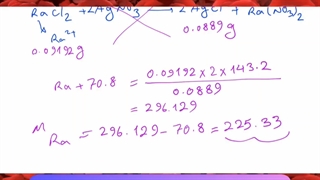 RaCl2 + 2AgNO3 → 2AgCl + Ra(NO3)2
Ra2+
0.09192g
0.0889g
Ra + 70.8 = 0.09192 x 2 x 143.2
0.0889
= 296.129
M Ra = 296.129 - 70.8 = 225.33